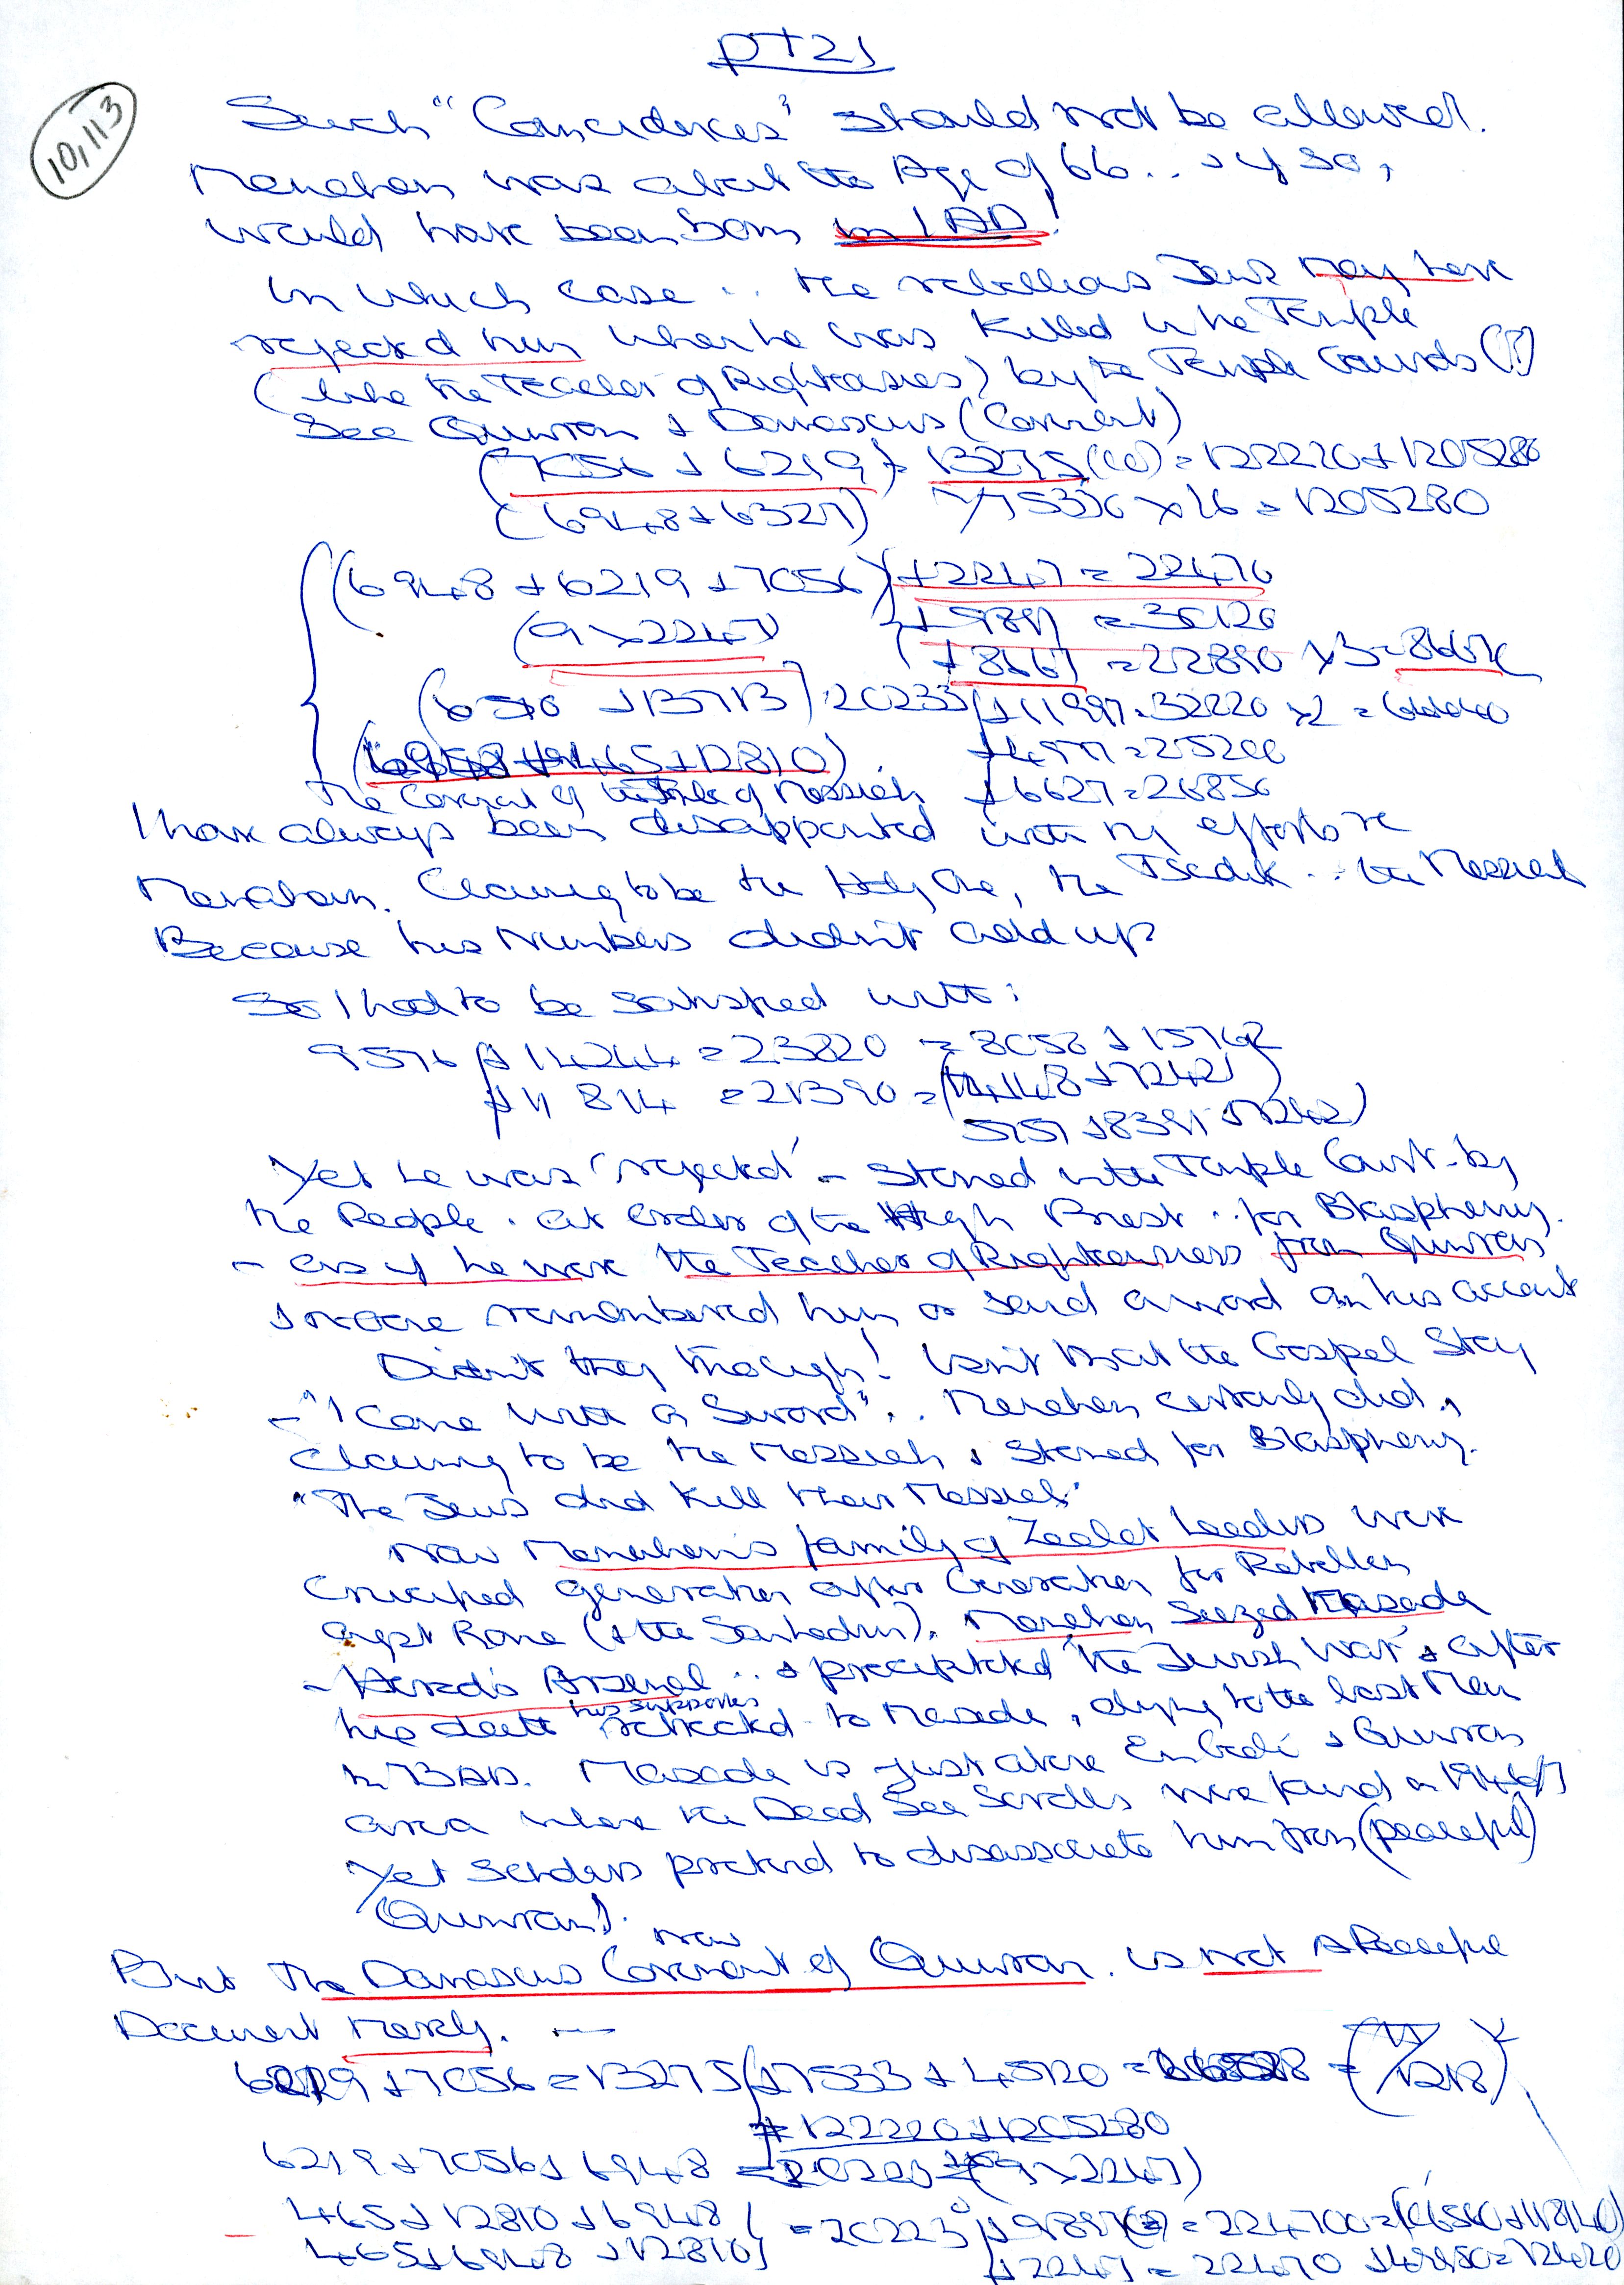 PT21
10,113
Such "Coincidences" should not be allowed.
Menahem was about the Age of 66.. & if so,
would have been born in 1AD!
In which case .. the rebellious Jews may have
rejected him when he was killed in the Temple
(like the Teacher of Righteousness) by the Temple Guards (?)
See Qumran & Damascus (Covenant)
(7056 + 6219) + 13275(00) = 122220 + 1205280
(6948 + 6327) 75330 x 16 = 1205280
(6948 + 6219 + 7056) + 2247 = 22470
(9 x 2247) + 9897 = 30120
+ 8667 = 28890 x 3 = 8667
(6510 + 13713) 20223 + 11997 = 32220 x 2 = 64440
(6948 + 465 + 12810) + 4977 = 25200
The Covenant of the of Messiah + 6627 = 26850
I have always been disappointed with my efforts re
Menahem. Claiming to be the Holy One, the Tsedik .. the Messiah
Because his Numbers didn't add up
So I had to be satisfied with:
9576 + 14244 = 23820 = 8058 + 15762
+ 11814 = 21390 = (14148 + 7242)
5757 + 8391 + 7242)
Yet he was 'rejected' - Stoned in the Temple Court - by
the People . at order of the High Priest .. for Blasphemy.
- as if he were the Teacher of Righteousness from Qumran
& no one remembered him or said a word on his account
Didn't they though! Isn't that the Gospel Story
- "I come with a Sword" .. Menahem certainly did,
Claiming to be the Messiah & Stoned for Blasphemy.
"The Jews did kill their Messiah"
Now Menahem's family of Zealot Leaders were
Crucified generation after Generation for Rebellion
against Rome (& the Sanhedrin). Menahem Seized Masada
- Herod's Arsenal .. & precipitated 'the Jewish War' & after
his death his supporters retreated to Masada, dying to the last Man
in 73AD. Masada is just above En Gedi & Qumran
area where the Dead Sea Scrolls were found in 1946/7
Yet Scholars pretend to disassociate him from (peaceful)
Qumran!.
But The Damascus Covenant of Qumran. now is not a Peaceful
Document Merely. —
6219 + 7056 = 13275 + 7533 + 45120 = (1218)
= 122220 + 1205280
6219 + 7056 + 6948 = (9 x 2247)
465 + 12810 + 6948 = 20223 + 9897 = 224700
465 + 6948 + 12810 + 2247 = 22470